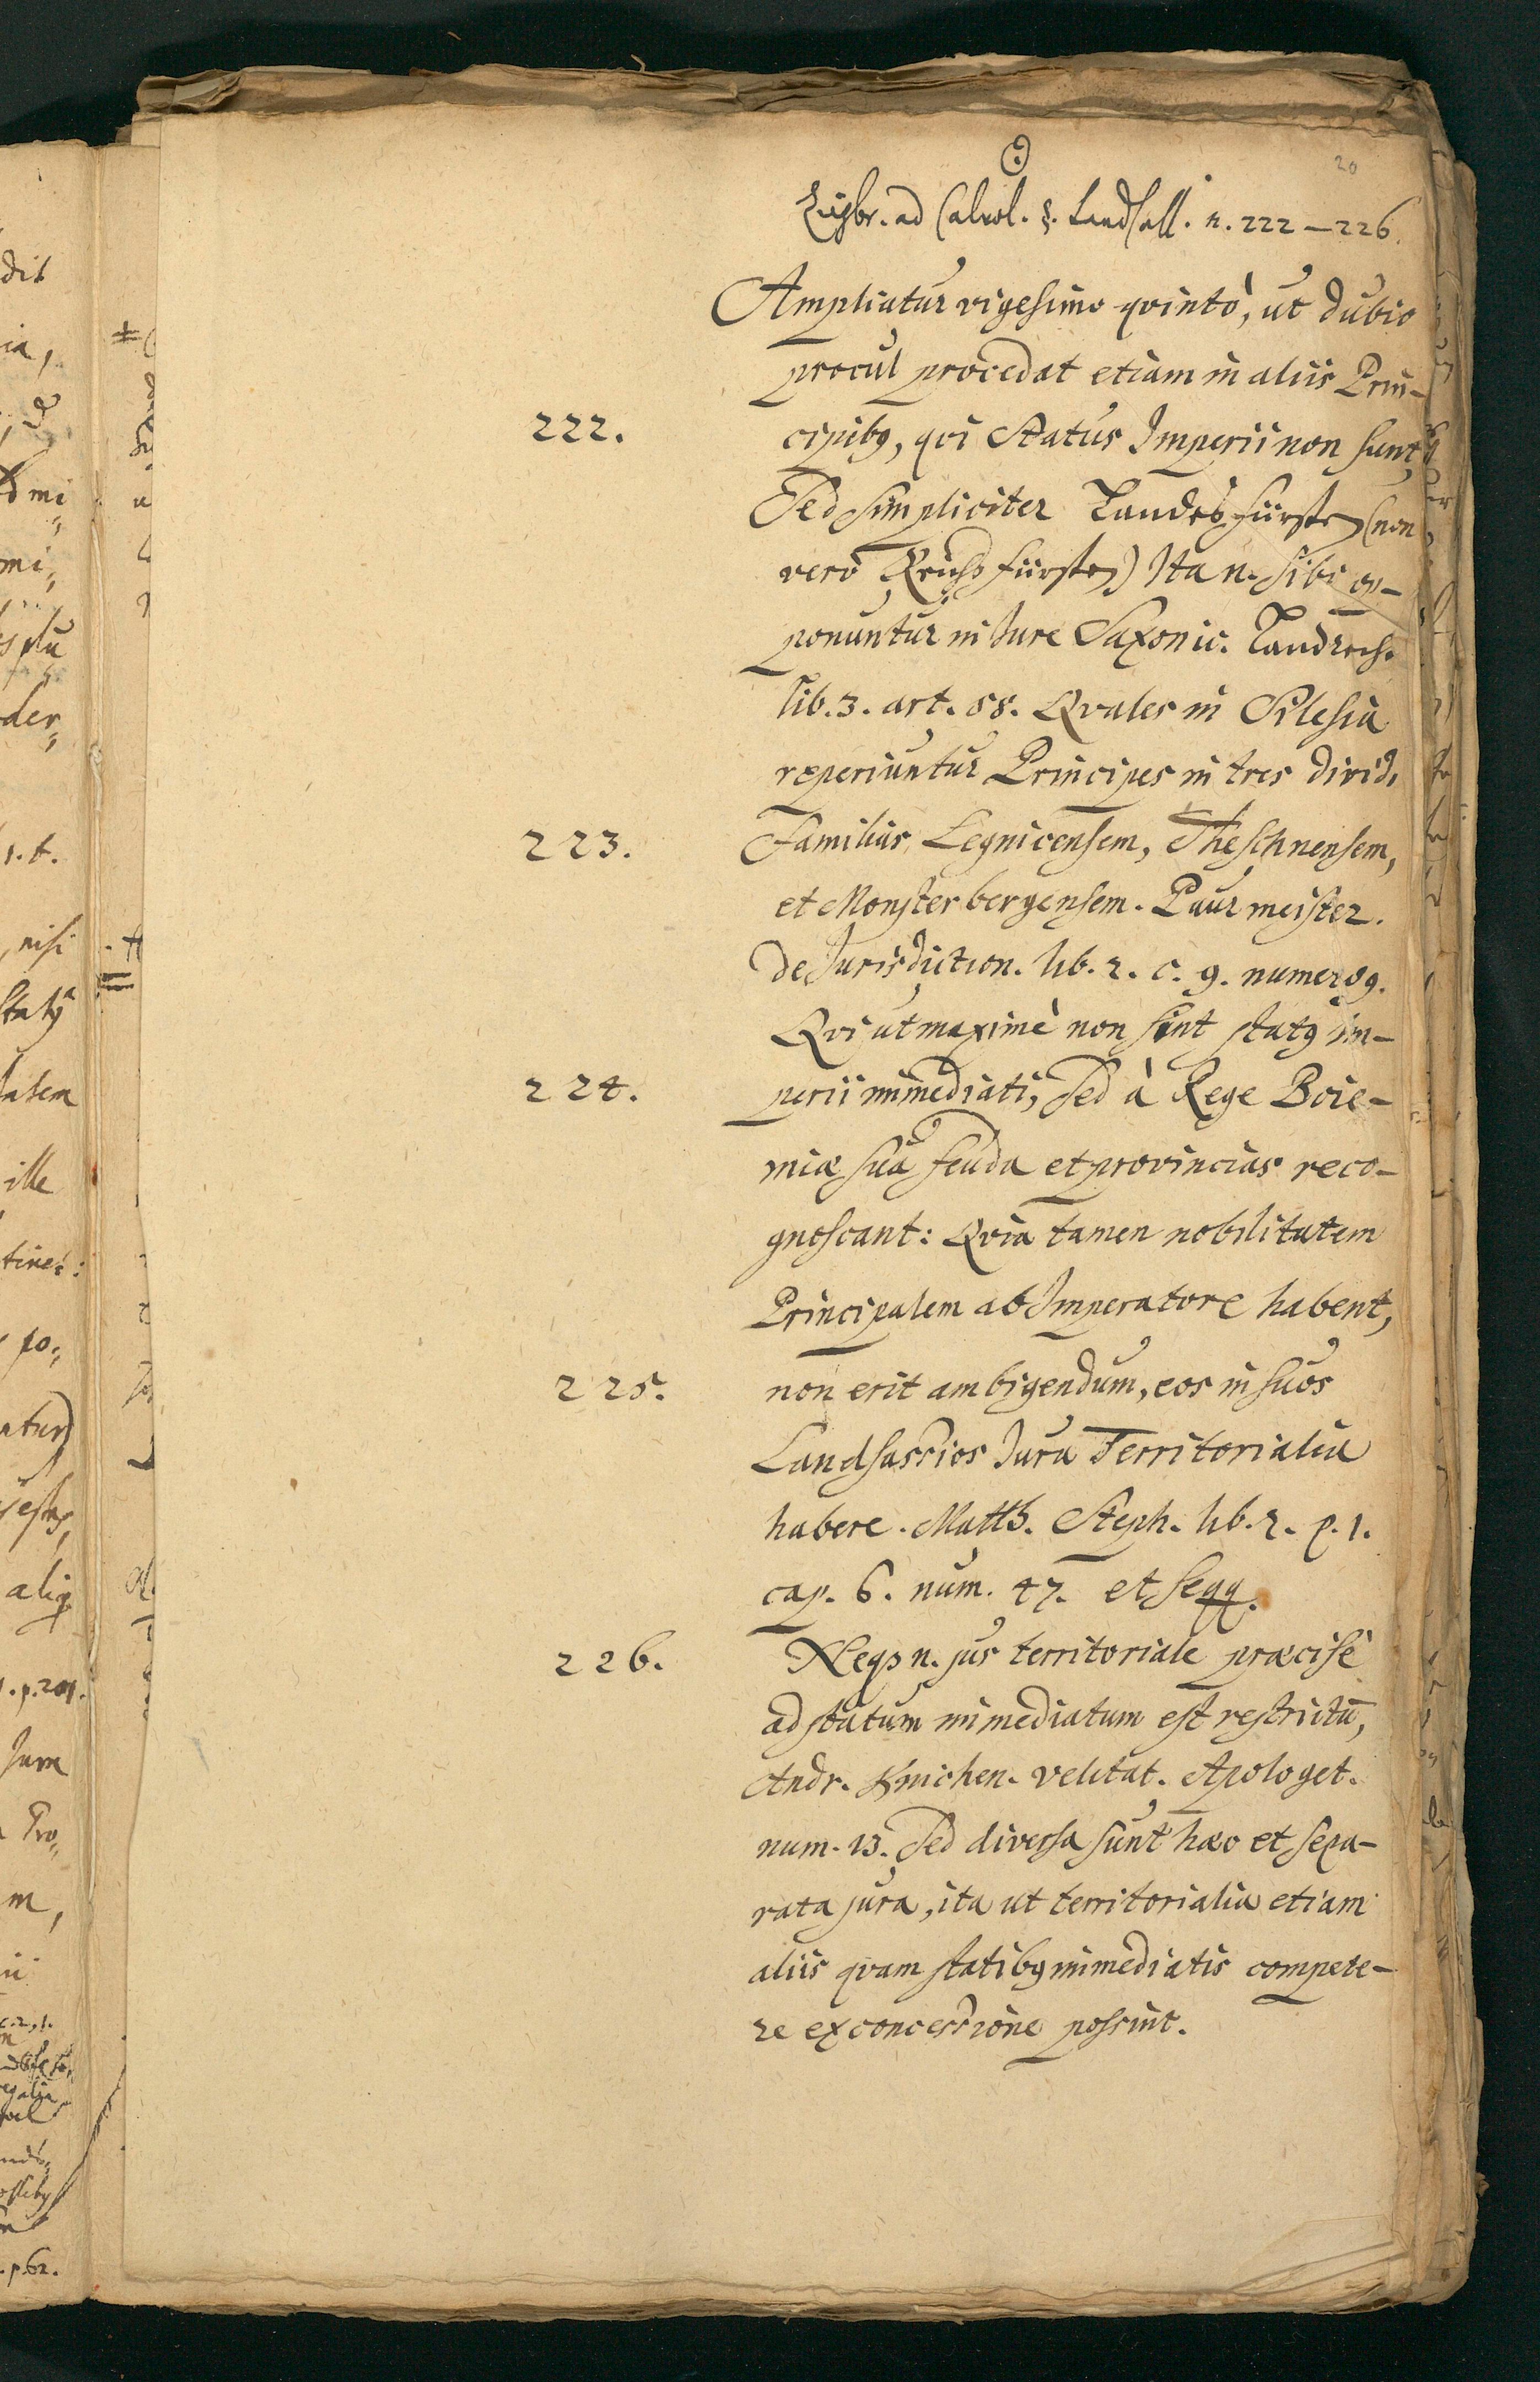 20
ad n. 222 – 226.
Ampliatur vigesimo qvintò, ut dubio
procul procedat etiam in aliis Prin-
222. cipibꝯ, qvi Status Imperii non sunt,
Sed simpliciter Landes fürsten (non
verò Reichs fürsten) Ita n. sibi op-
ponuntur in Jure Saxonic. Landrech.
lib. 3. art. 58. Qvales in Silesia
reperiuntur Principes in tres divid.
223. Familias, Legnicensem, Theschnensem,
et Monsterbergensem. Paurmeister.
de Jurisdiction. lib. 2. c. 9. numer. 89.
Qvi ut maximè non sint statꝯ im-
224. perii immediati, sed à Rege Boie-
miæ sua feuda et provincias reco-
gnoscant: Qvia tamen nobilitatem
Principalem ab Imperatore habent,
225. non erit ambigendum, eos in suos
Landsassios Jura Territorialia
habere. Matth. Steph. lib. 2. p. 1.
cap. 6. num. 47. et seqq.
226. Neqꝫ n. jus territoriale præcisè
ad statum immediatum est restrictū,
Andr. Knichen. velitat. Apologet.
num. 13. Sed diversa sunt hæc et sepa-
rata jura, ita ut territorialia etiam
aliis qvam statibꝯ immediatis compete-
re ex concessione possint.